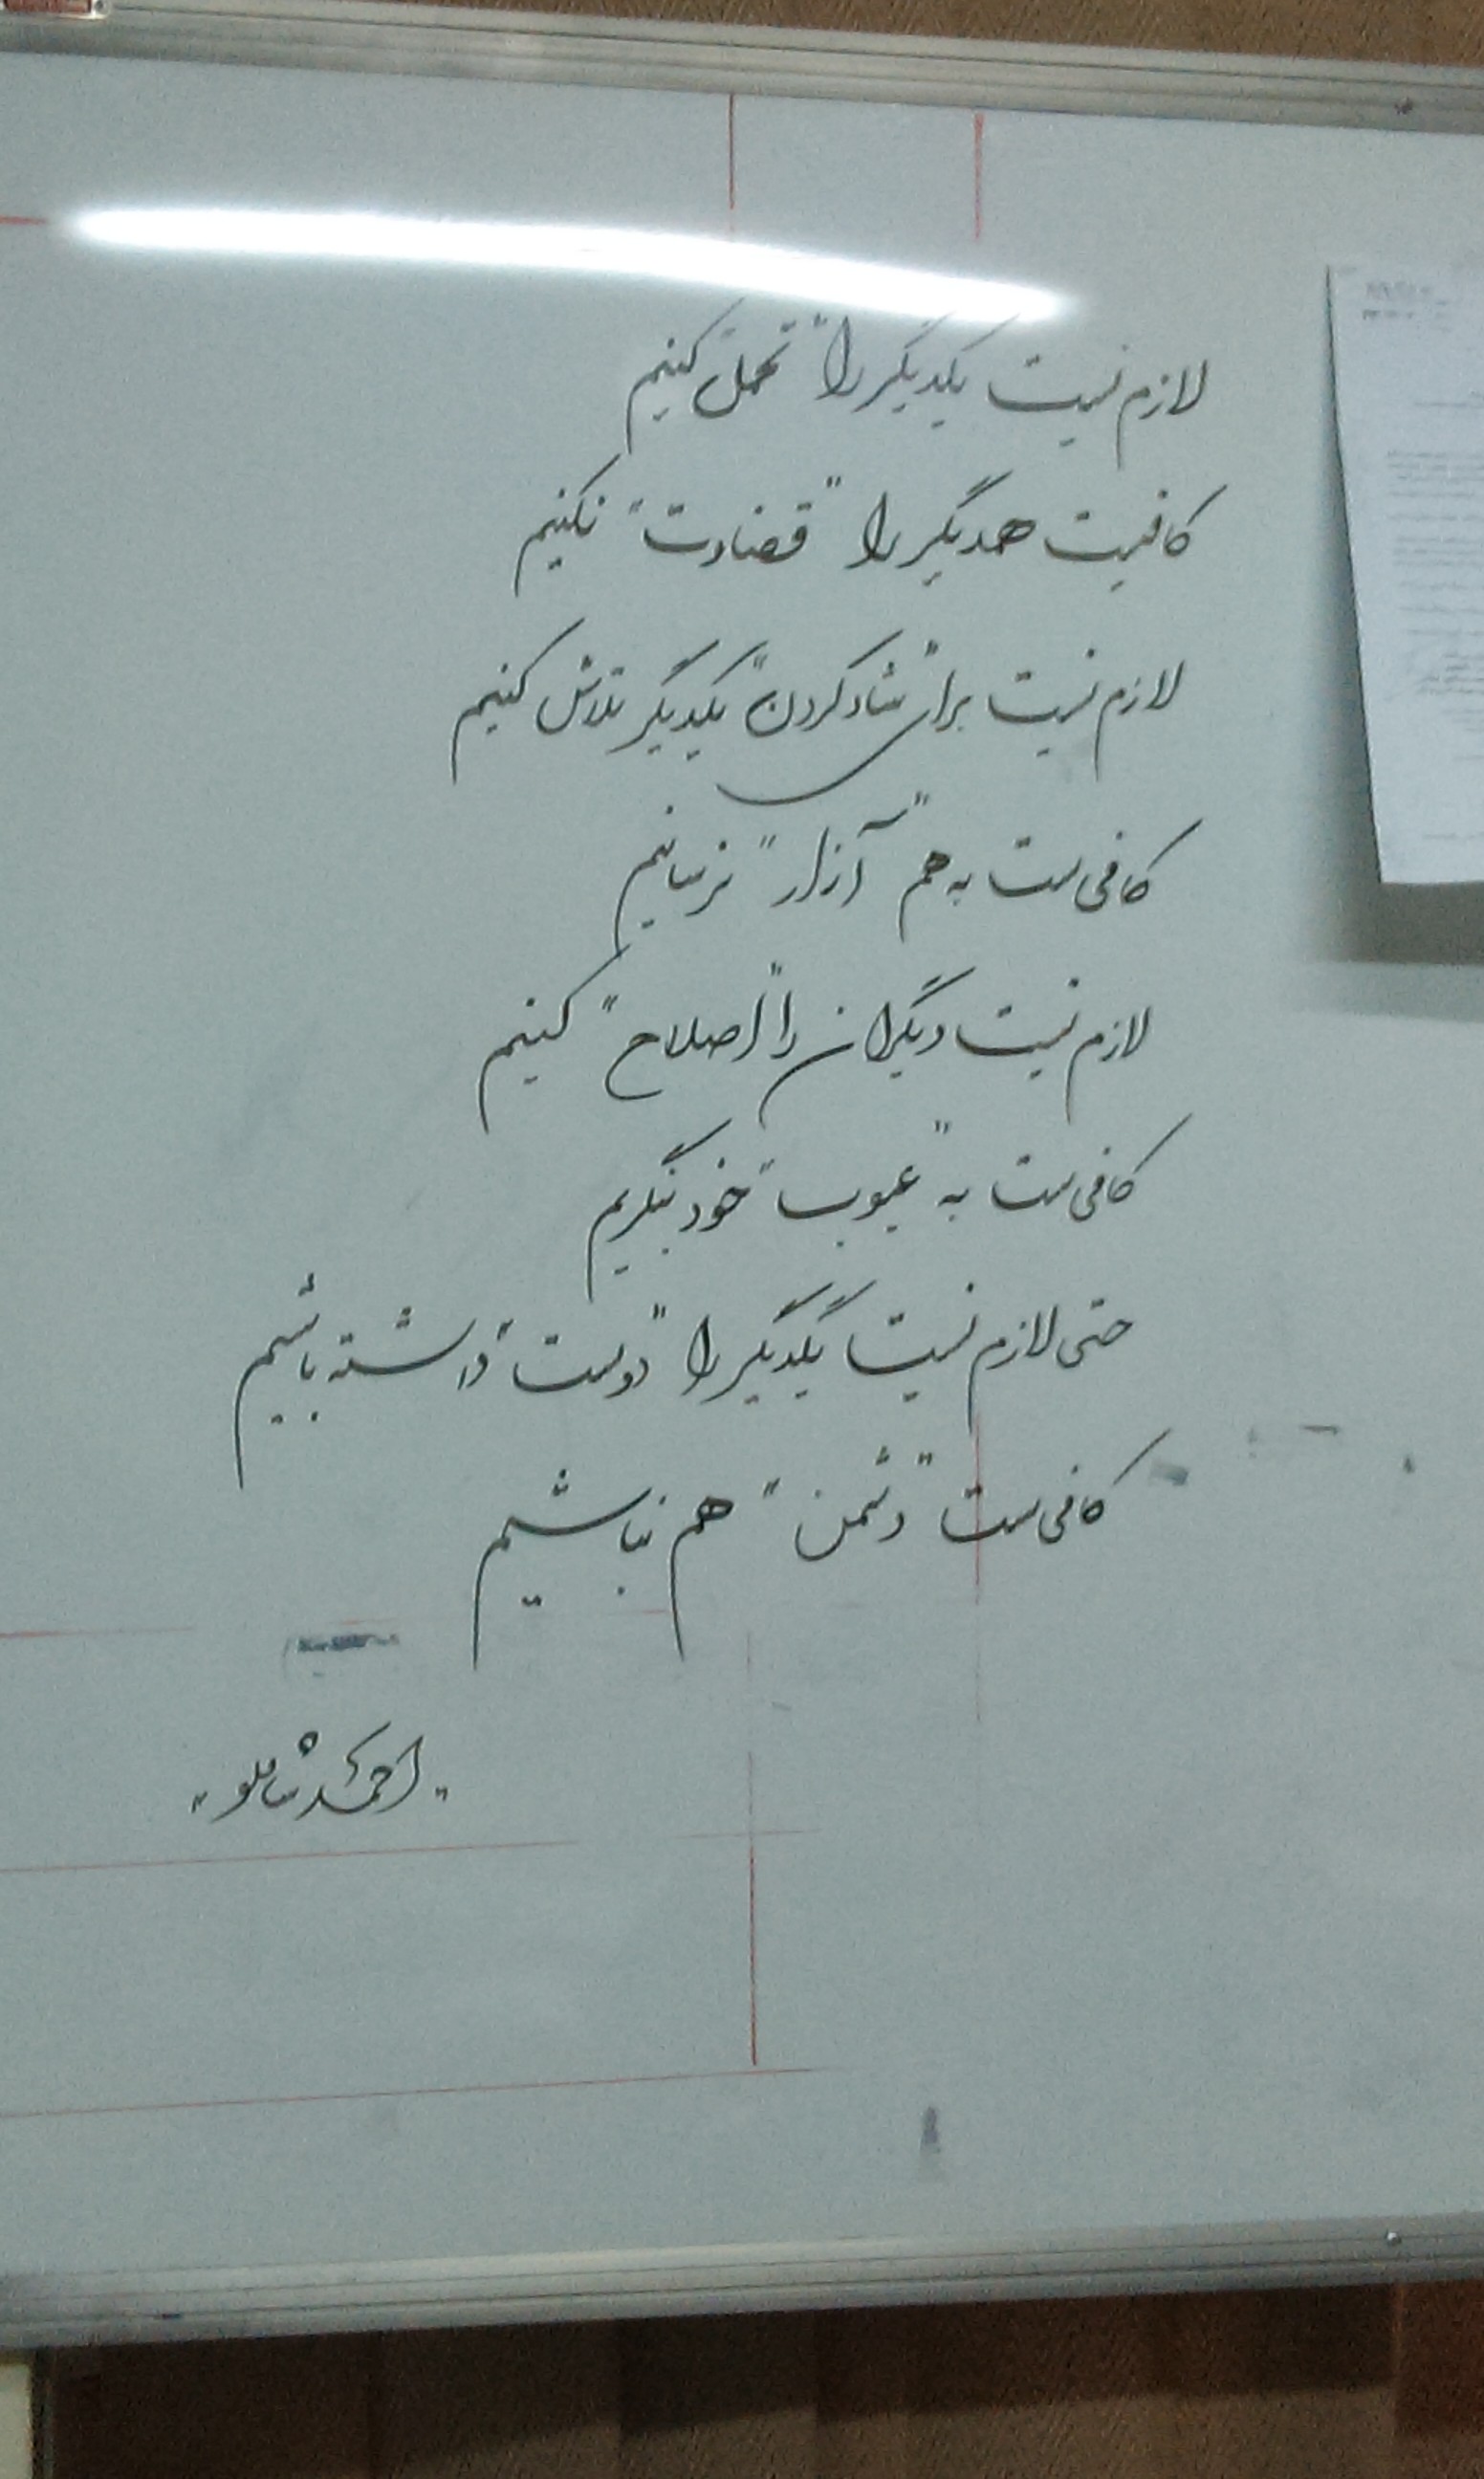 لازم نیست یکدیگر را "تحمل" کنیم
کافیست همدیگر را "قضاوت" نکنیم
لازم نیست برای "شاد کردن" یکدیگر تلاش کنیم
کافی‌ست به هم "آزار" نرسانیم
لازم نیست دیگران را "اصلاح" کنیم
کافی‌ست به "عیوب" خود بنگریم
حتی لازم نیست یکدیگر را "دوست" داشته باشیم
کافی‌ست "دشمن" هم نباشیم
"احمد شاملو"